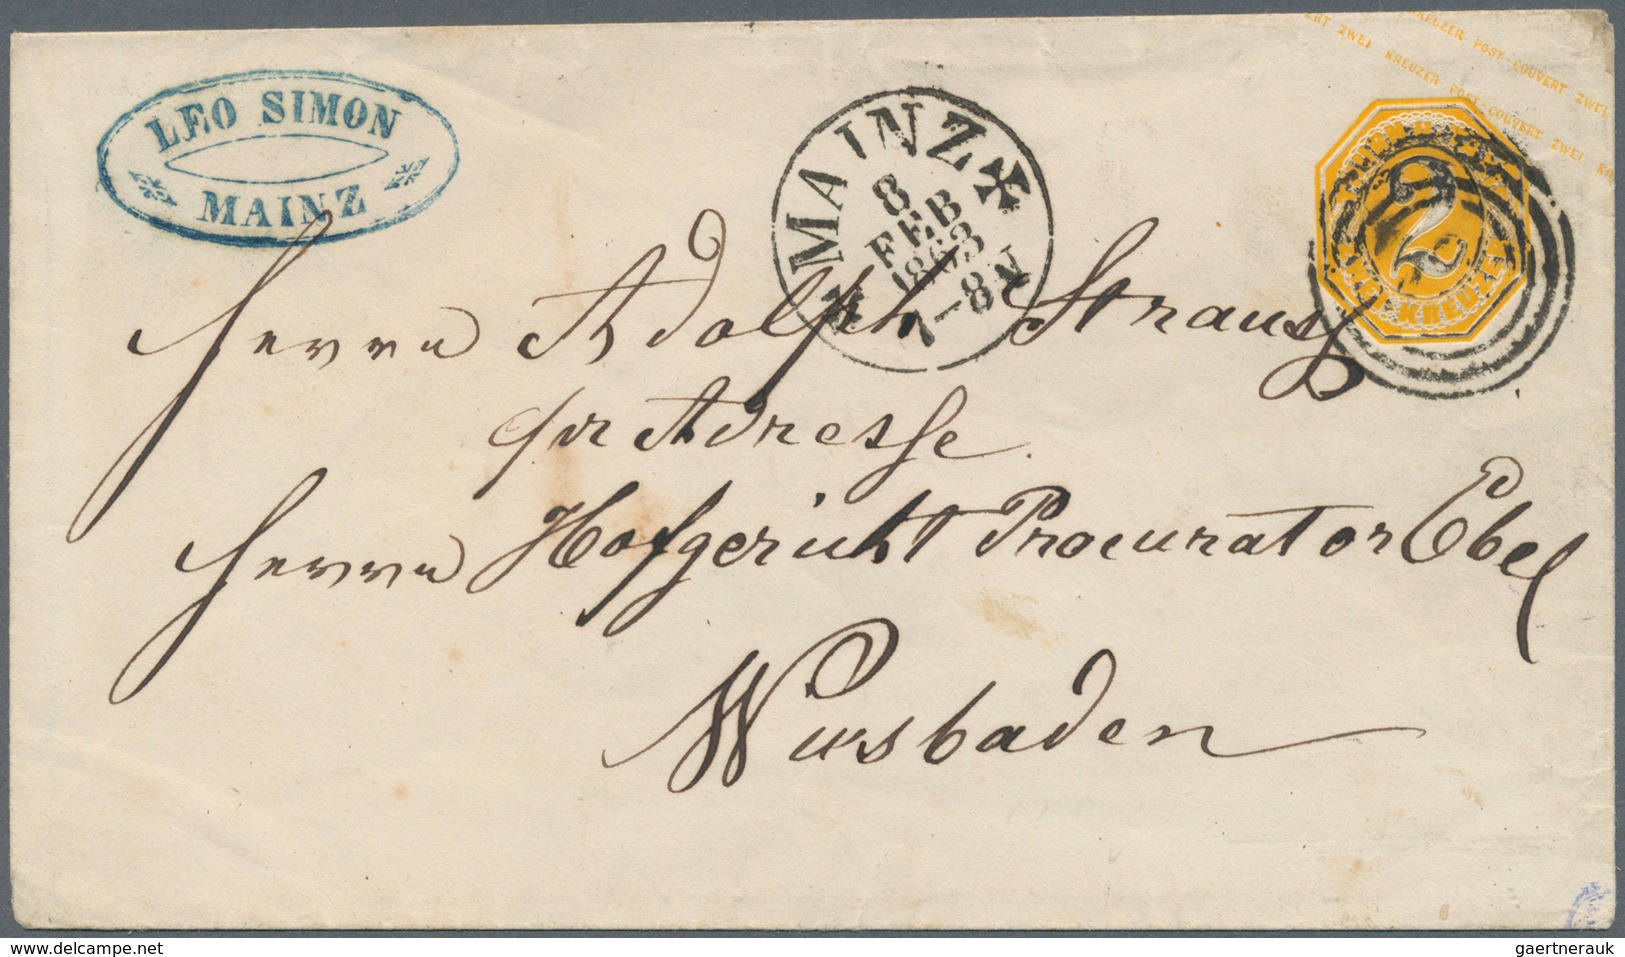 LEO SIMON
MAINZ
MAINZ
8
FEB
1863
7-8N
KREUZER POST-COUVERT ZWEI
ERT ZWEI KREUZER POST-COUVERT ZWEI KR
2
ZWEI KREUZER
Herrn Adolph Strauss
pr Adresse
Herrn Hofgericht Procurator Ebel
Wiesbaden
www.delcampe.net
gaertnerauk